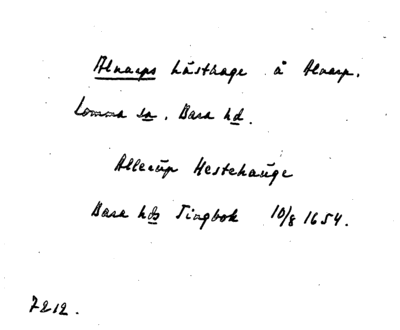 Alnarps hästhage å Alnarp.
Lomma sn. Bara hd.
Allerüp Hestehaüge
Bara hds Tingbok 10/8 1654.
7212.